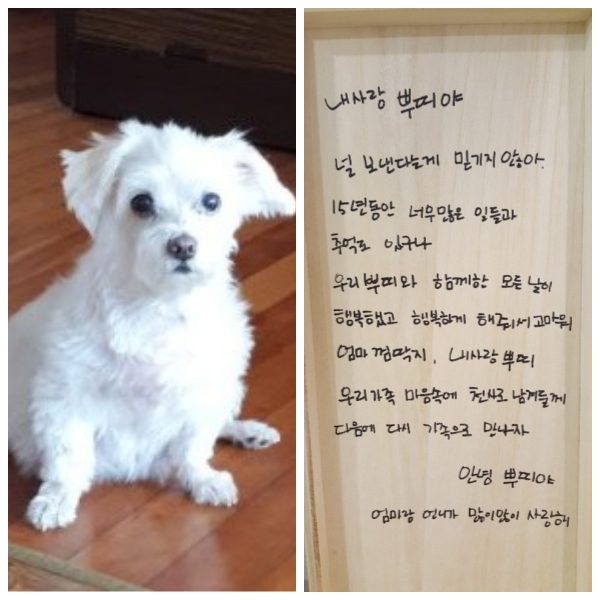 내사랑 뿌띠야
널 보낸다는게 믿기지 않아.
15년동안 너무많은 일들과
추억도 있구나
우리뿌띠와 함께한 모든 날이
행복했고 행복하게 해줘서 고마워
엄마 껌딱지, 내사랑 뿌띠
우리가족 마음속에 천사로 남겨둘께
다음에 다시 가족으로 만나자
안녕 뿌띠야
엄마랑 언니가 많이많이 사랑해